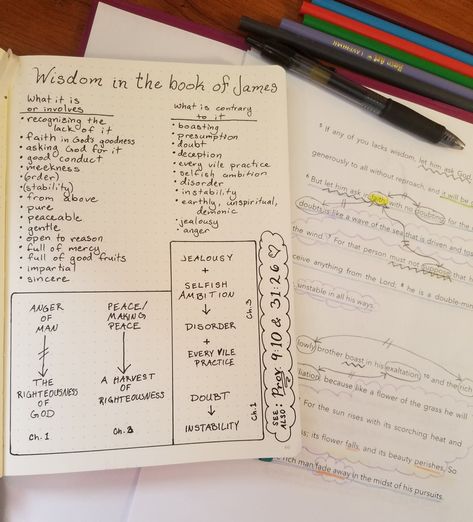 Wisdom in the book of James
What it is
or involves
• recognizing the
lack of it
• faith in God's goodness
• asking God for it
• good conduct
• meekness
• (order)
• (stability)
• from above
• pure
• peaceable
• gentle
• open to reason
• full of mercy
• full of good fruits
• impartial
• sincere
What is contrary
to it
• boasting
• presumption
• doubt
• deception
• every vile practice
• selfish ambition
• disorder
• instability
• earthly, unspiritual,
demonic
• jealousy
• anger
ANGER
OF
MAN
THE
RIGHTEOUSNESS
OF
GOD
Ch. 1
PEACE/
MAKING
PEACE
A HARVEST
OF
RIGHTEOUSNESS
Ch. 3
JEALOUSY
+
SELFISH
AMBITION
DISORDER
+
EVERY VILE
PRACTICE
Ch. 3
DOUBT
INSTABILITY
Ch. 1
SEE
ALSO: Prov 9:10 & 31:26
5 If any of you lacks wisdom, let him ask God,
generously to all without reproach, and it will be
6 But let him ask faith, with no doubting, for the
doubts is like a wave of the sea that is driven and
the wind. 7 For that person must not suppose that he
ceive anything from the Lord; 8 he is a double-
unstable in all his ways.
lowly brother boast in his exaltation, 10 and the
liation, because like a flower of the grass he will
For the sun rises with its scorching heat and
ss; its flower falls, and its beauty perishes. So
rich man fade away in the midst of his pursuits.